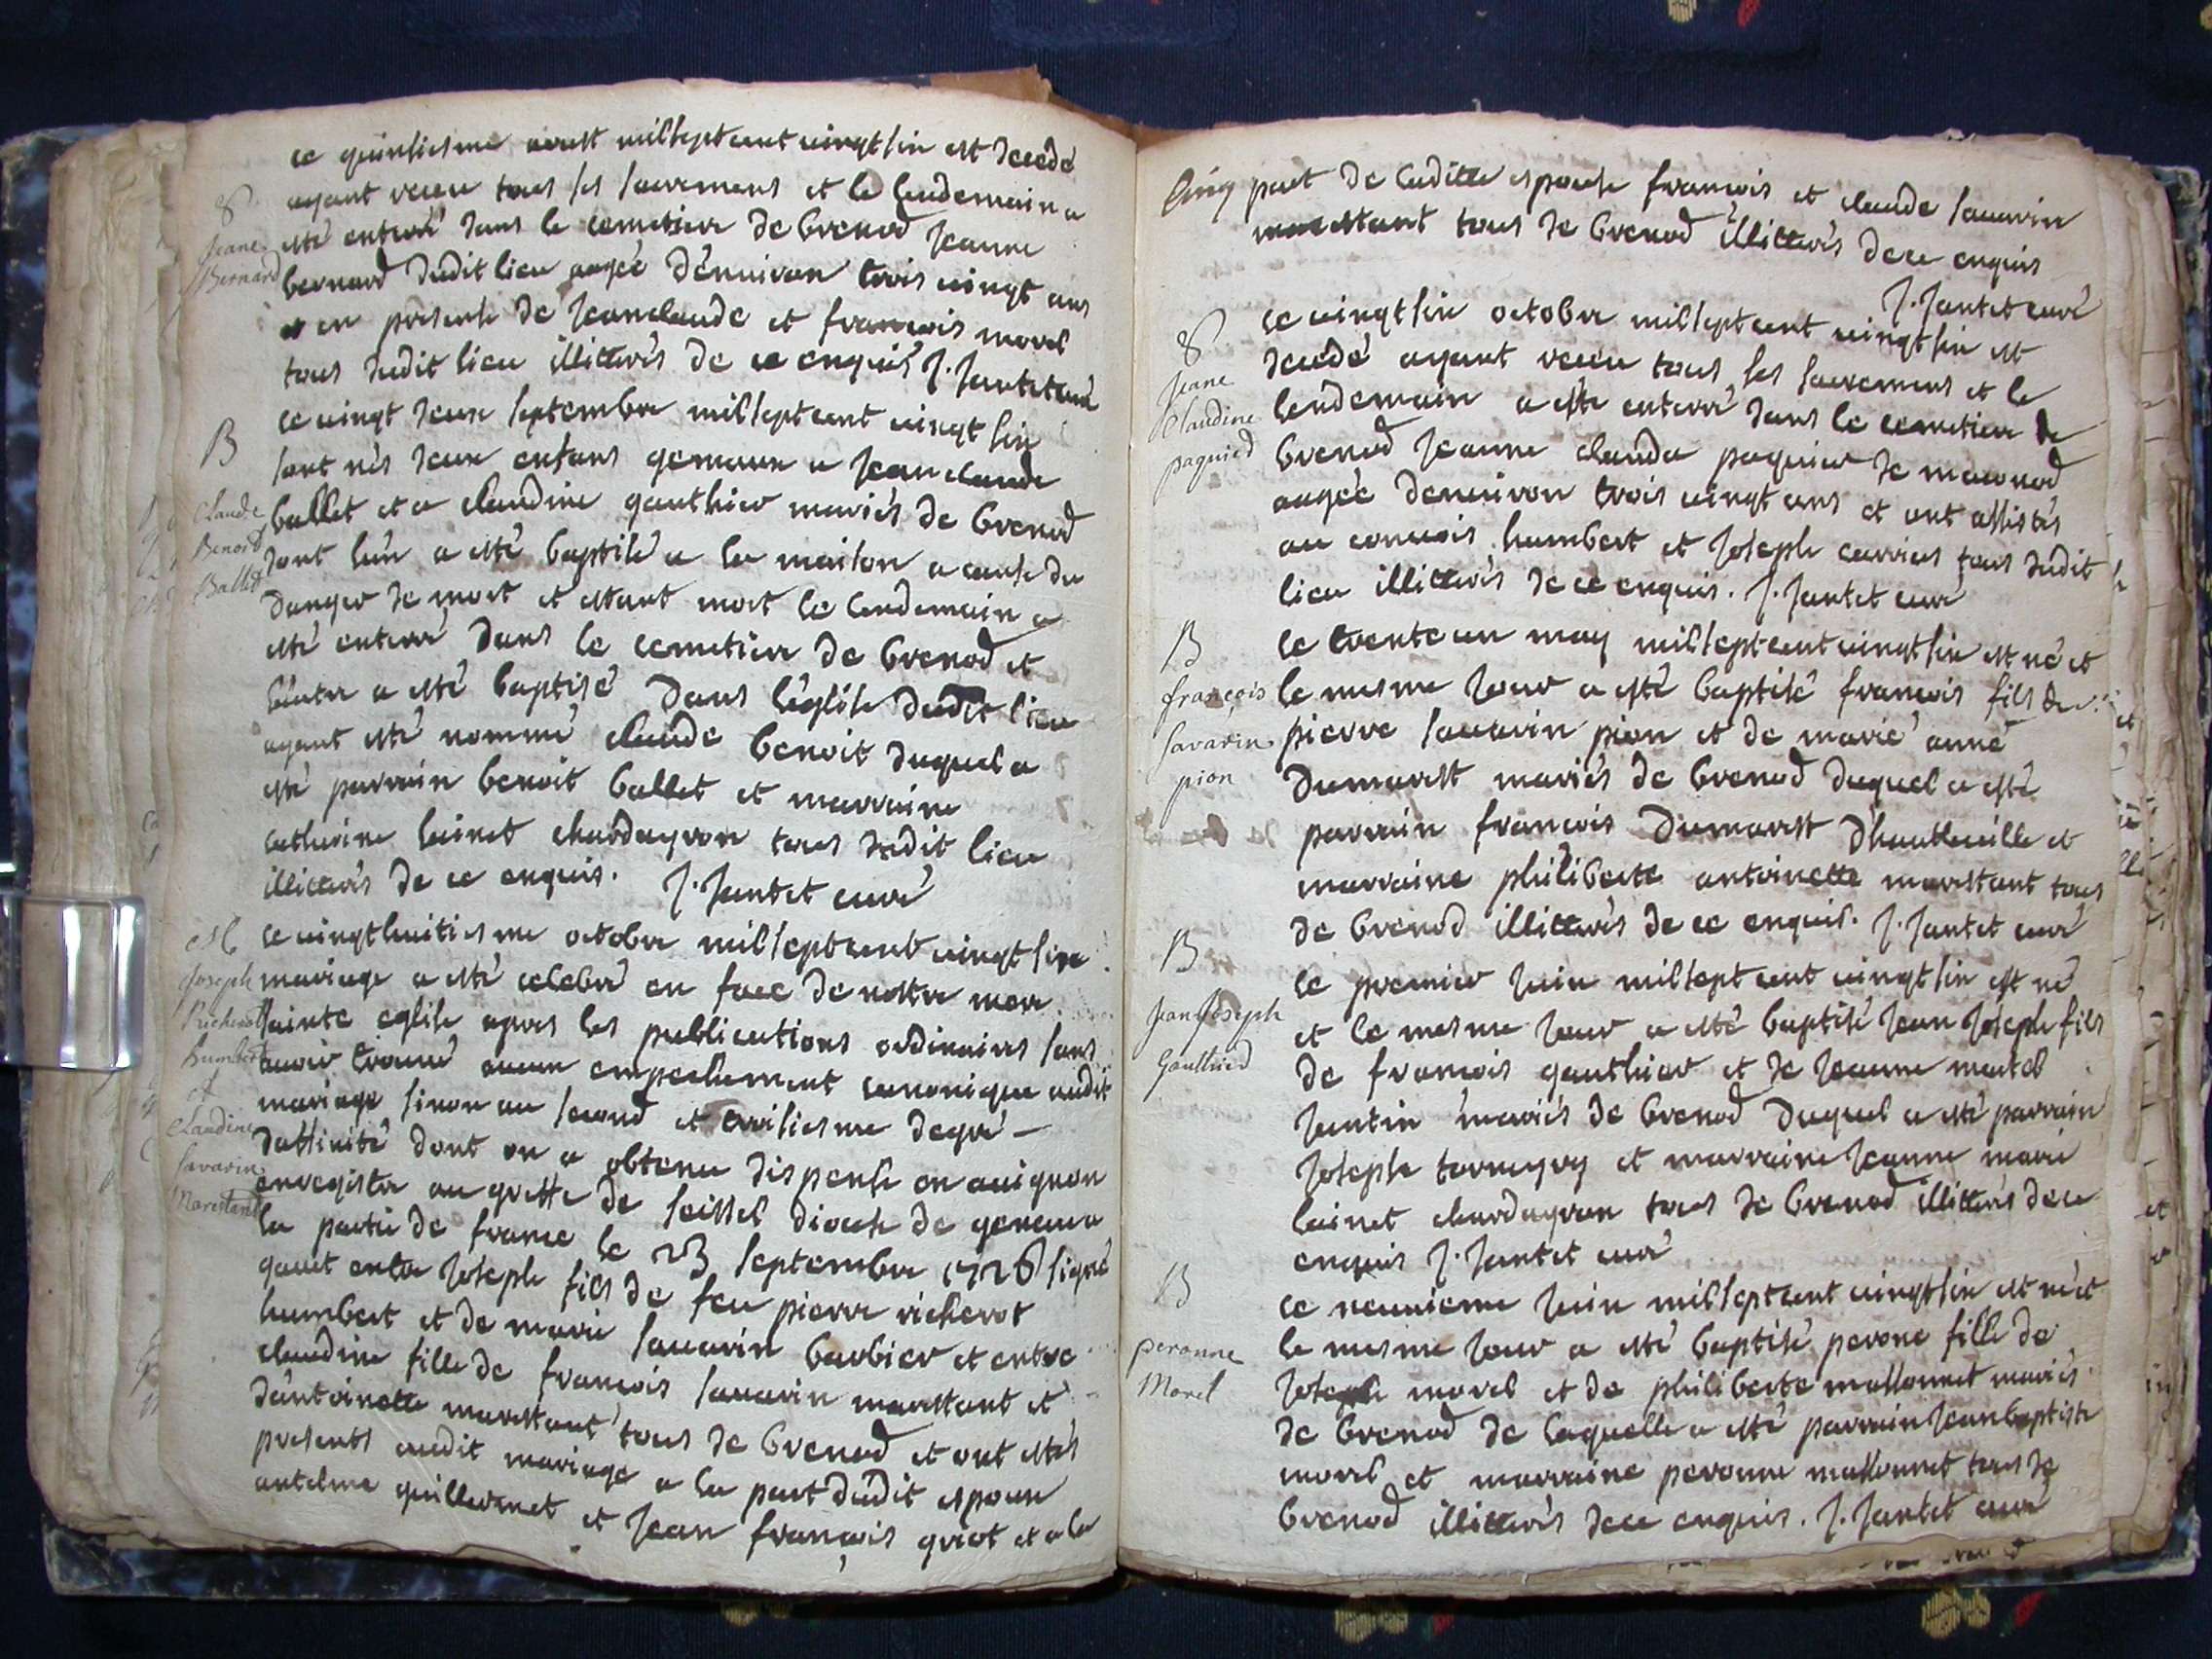 ce quinsiesme aoust milseptcent vingt six est decedé
ayant receu tous ses sacremens et le lendemain a
S.
Jeane
Bernard
esté enterré dans le cemetiere de brenod Jeanne
bernard dudit lieu aagée d'environ trois vingt ans
en presence de Jeanclaude et francois morel
tous dudit lieu illitterés de ce enquis J. Jantet curé
B
Claude
Benoid
Ballet
ce vingt deux septembre milseptcent vingt six
sont nés deux enfans gemeaux a Jean claude
ballet et a claudine gauthier mariés de brenod
dont lun a esté baptisé a la maison a cause du
danger de mort et estant mort le lendemain a
esté enterré dans le cemetiere de brenod et
lautre a esté baptisé dans léglise dudit lieu
ayant esté nommé claude benoit duquel a
esté parrain benoit ballet et marraine
catherine lainet chardeyron tous dudit lieu
illitterés de ce enquis. J. Jantet curé
M
Joseph
Richerot
humbert
et
Claudine
Savarin
Marestand
ce vingthuitiesme octobre milseptcent vingt six
mariage a esté celebré en face de nostre mere
sainte eglise apres les publications ordinaires sans
avoir trouvé aucun empechement canonique audit
mariage sinon au second et troisiesme degré
daffinité dont on a obtenu dispense en avignon
enregistré au greffe de seissel diocese de geneve
la partie de france le 23 septembre 1726 signé
gavet entre Joseph fils de feu pierre richerot
humbert et de marie savarin barbier et entre
claudine fille de francois savarin marestant et
d'antoinette marestant tous de brenod et ont estés
presents audit mariage a la part dudit espoux
antelme guillermet et Jean françois griot et a la
Cinq
part de laditte espouse francois et claude savarin
marestant tous de brenod illitterés de ce enquis
J. Jantet curé
S.
Jeane
Claudine
paguied
ce vingt six octobre milseptcent vingt six est
decedé ayant receu tous ses sacremens et le
lendemain a esté enterré dans le cemetiere de
brenod Jeanne clauda paquier de
aagée denviron trois vingt ans et ont assistés
au convois humbert et Joseph carrier tous dudit
lieu illitterés de ce enquis. J. Jantet curé
B
françois
Savarin
pion
le trente un may milseptcent vingt six est né et
le mesme Jour a esté baptisé francois fils de
pierre savarin pion et de marie anne
Dumarest mariés de brenod duquel a esté
parrain francois Dumarest d'hauteville et
marraine philiberte antoinette marestant tous
de brenod illitterés de ce enquis. J. Jantet curé
B
Jean Joseph
Gauthied
le premier Juin milsept cent vingt six est né
et le mesme Jour a esté baptisé Jean Joseph fils
de francois gauthier et de Jeanne martel
Jantin mariés de brenod duquel a esté parrain
Joseph et marraine Jeanne marie
lainet chardeyron tous de brenod illitterés de ce
enquis J. Jantet curé
B
peronne
Morel
ce neuvieme Juin milseptcent vingt six est né et
le mesme Jour a esté baptisé perone fille de
Joseph morel et de philiberte massonnet mariés
de brenod de laquelle a esté parrain Jean baptiste
morel et marraine peronne massonnet tous de
brenod illitterés de ce enquis. J. Jantet curé